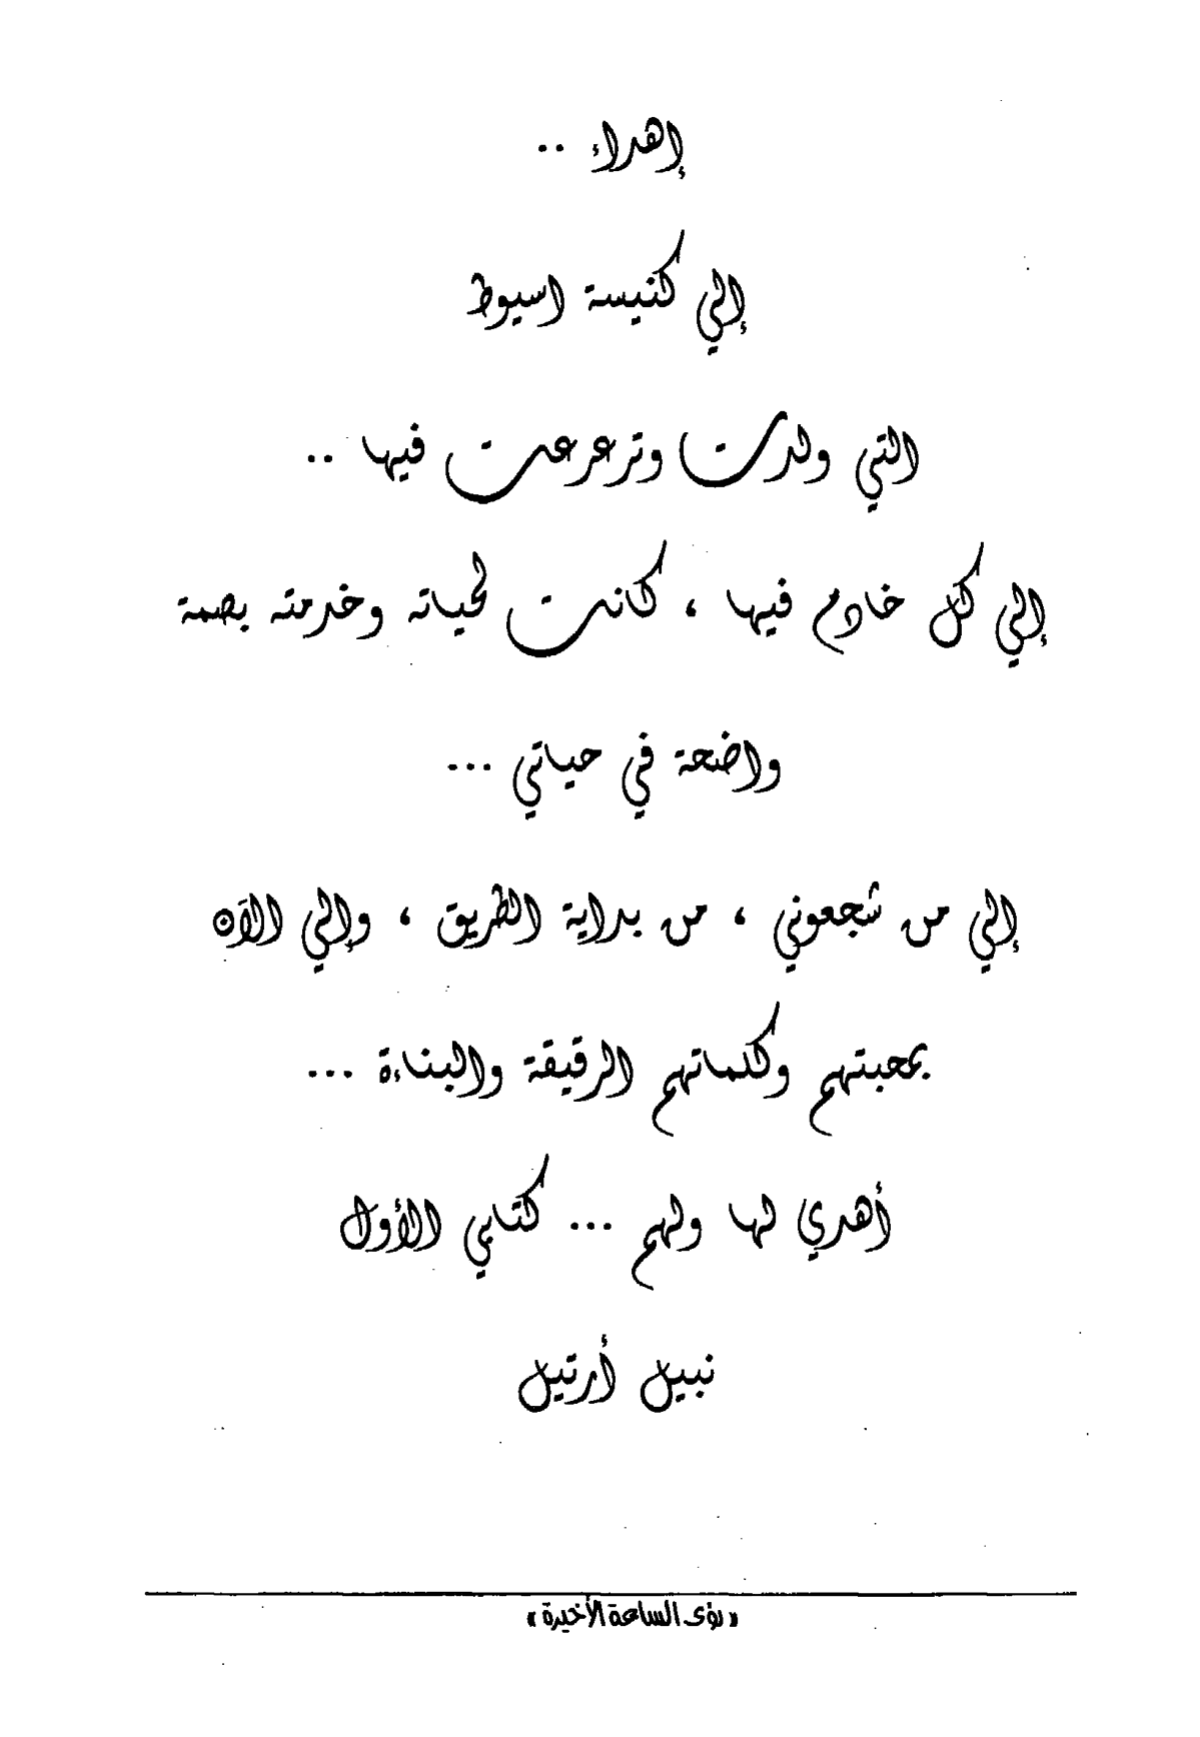 إهداء ..
إلي كنيسة اسيوط
التي ولدت وترعرعت فيها ..
إلي كل خادم فيها ، كانت لحياته وخدمته بصمة
واضحة في حياتي ...
إلي من شجعوني ، من بداية الطريق ، وإلي الآن
بمحبتهم وكلماتهم الرقيقة والبناءة ...
أهدي لها ولهم ... كتابي الأول
نبيل أرتيل
« رؤى الساعة الأخيرة »